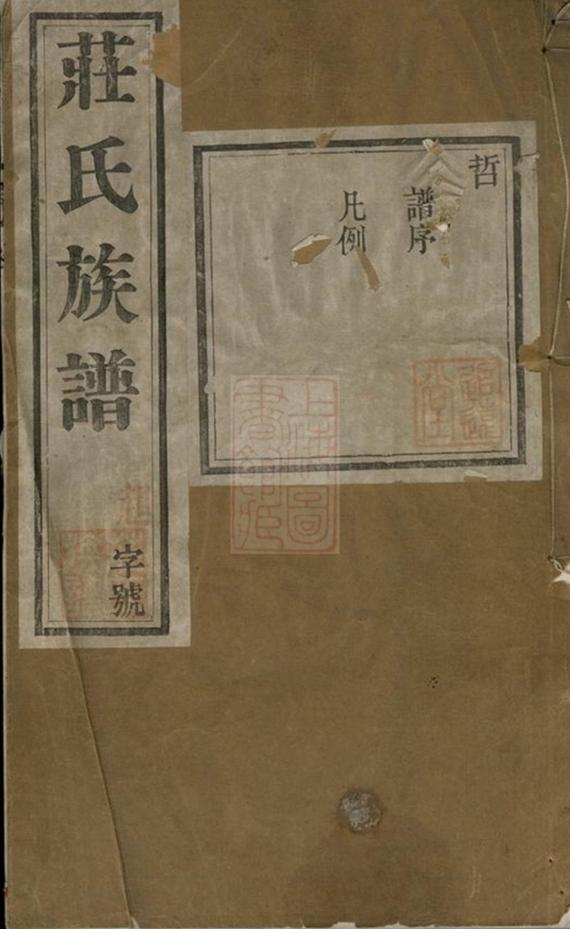 莊氏族譜
字號
哲
譜序
凡例
上海圖
書館藏
追遠
堂